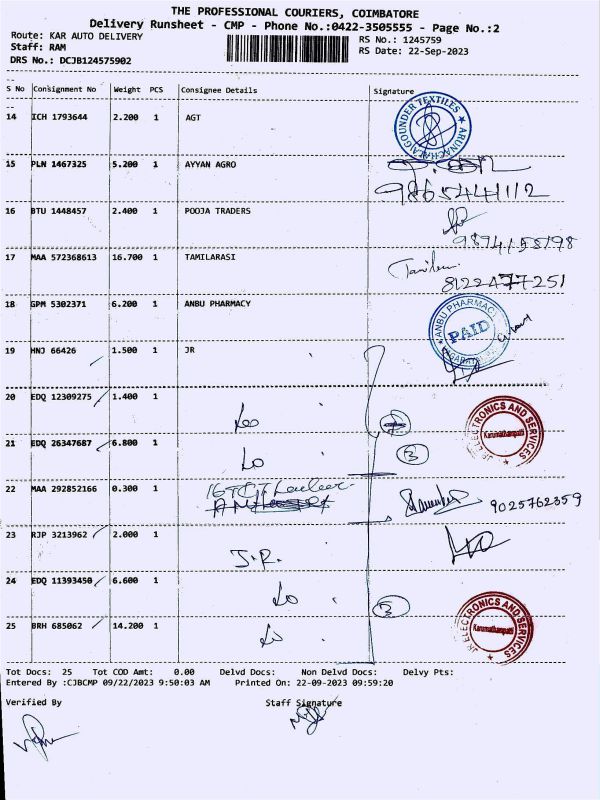 THE PROFESSIONAL COURIERS, COIMBATORE
Delivery Runsheet - CMP - Phone No.:0422-3505555 - Page No.:2
Route: KAR AUTO DELIVERY
RS No.: 1245759
Staff: RAM
RS Date: 22-Sep-2023
DRS No.: DCJB124575902
S No Consignment No Weight PCS Consignee Details Signature
14 ICH 1793644 2.200 1 AGT
ARUNACHALAGOUNDER TEXTILES
15 PLN 1467325 5.200 1 AYYAN AGRO
9865441112
16 BTU 1448457 2.400 1 POOJA TRADERS
9894158198
17 MAA 572368613 16.700 1 TAMILARASI
8122477251
18 GPM 5302371 6.200 1 ANBU PHARMACY
ANBU PHARMACY
PAID
19 HNJ 66426 1.500 1 JR
20 EDQ 12309275 1.400 1
JR ELECTRONICS AND SERVICES
Karumathampatti
21 EDQ 26347687 6.800 1
3
22 MAA 292852166 0.300 1
9025762359
23 RJP 3213962 2.000 1 J.R.
24 EDQ 11393450 6.600 1
JR ELECTRONICS AND SERVICES
Karumathampatti
25 BRH 685062 14.200 1
Tot Docs: 25 Tot COD Amt: 0.00 Delvd Docs: Non Delvd Docs: Delvy Pts:
Entered By :CJBCMP 09/22/2023 9:50:03 AM Printed On: 22-09-2023 09:59:20
Verified By Staff Signature